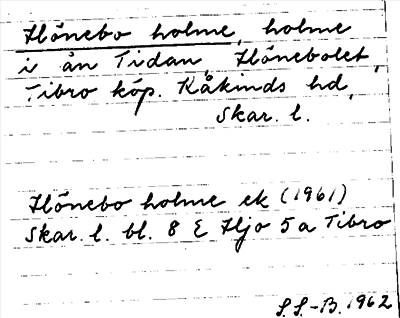 Hönebo holme, holme
i ån Tidan, Hönebolet,
Tibro köp. Kåkinds hd,
Skar. l.
Hönebo holme ek (1961)
Skar. l. bl. 8 E Hjo 5a Tibro
S.S.-B. 1962